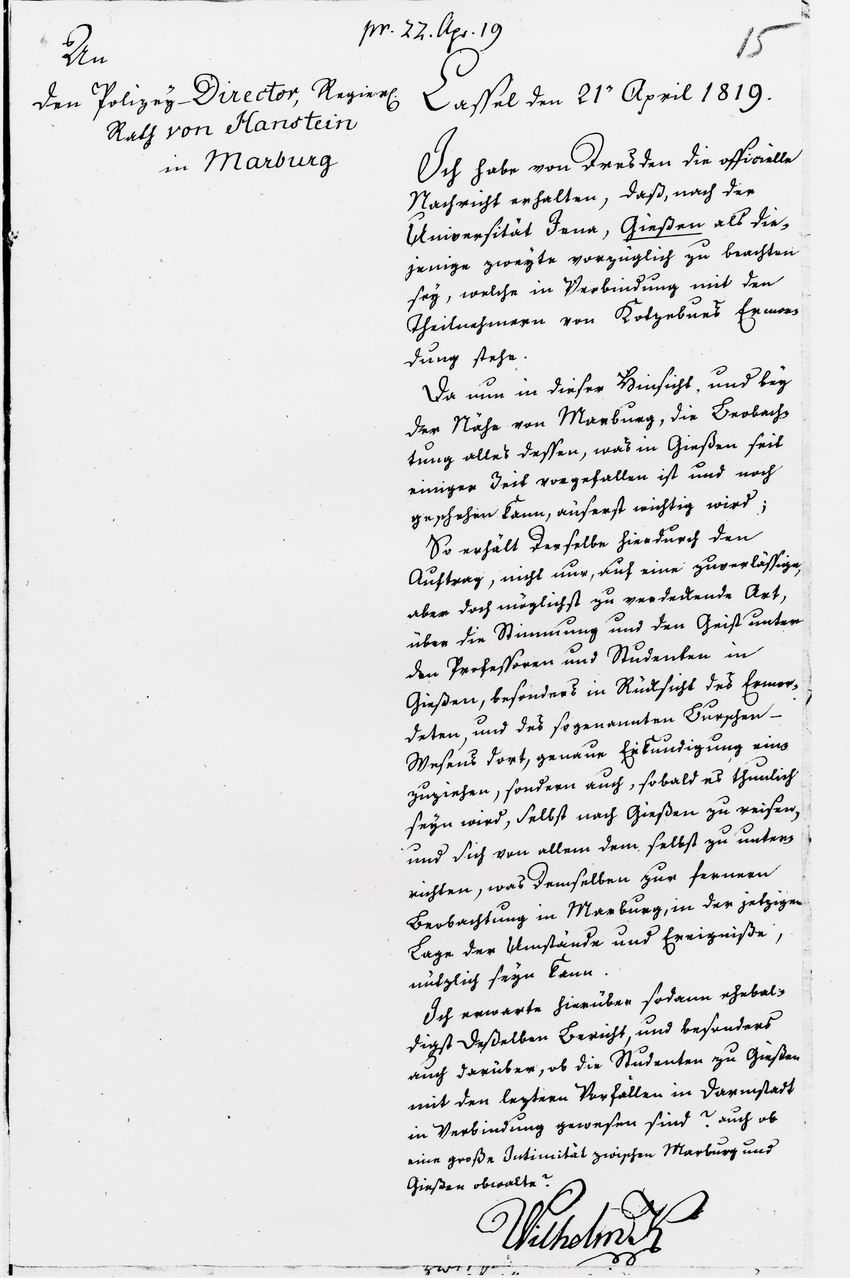 pr. 22. Apr. 19
15
An
den Polizey-Director, Regier.
Rath von Hanstein
in Marburg
Cassel den 21n April 1819.
Ich habe von Dresden die officielle
Nachricht erhalten, daß, nach der
Universität Jena, Gießen als die-
jenige zweyte vorzüglich zu beachten
sey, welche in Verbindung mit den
Theilnehmern von Kotzebues Ermor-
dung stehe.
Da nun in dieser Hinsicht, und bey
der Nähe von Marburg, die Beobach-
tung alles dessen, was in Gießen seit
einiger Zeit vorgefallen ist und noch
geschehen kann, äuserst wichtig wird;
So erhält derselbe hierdurch den
Auftrag, nicht nur, auf eine zuverlässige,
aber doch möglichst zu verdeckende Art,
über die Stimmung und den Geist unter
den Professoren und Studenten in
Gießen, besonders in Rücksicht des Ermor-
deten, und des sogenannten Burschen-
Wesens dort, genaue Erkundigung ein-
zuziehen, sondern auch, sobald es thunlich
seyn wird, selbst nach Gießen zu reisen,
und sich von allem dem selbst zu unter-
richten, was demselben zur fernern
Beobachtung in Marburg, in der jetzigen
Lage der Umstände und Ereigniße,
nützlich seyn kann.
Ich erwarte hierüber sodann ehebal-
digst deßelben Bericht, und besonders
auch darüber, ob die Studenten zu Gießen
mit den leztern Vorfällen in Darmstadt
in Verbindung gewesen sind? auch ob
eine große Intimität zwischen Marburg und
Gießen obwalte?
Wilhelm K